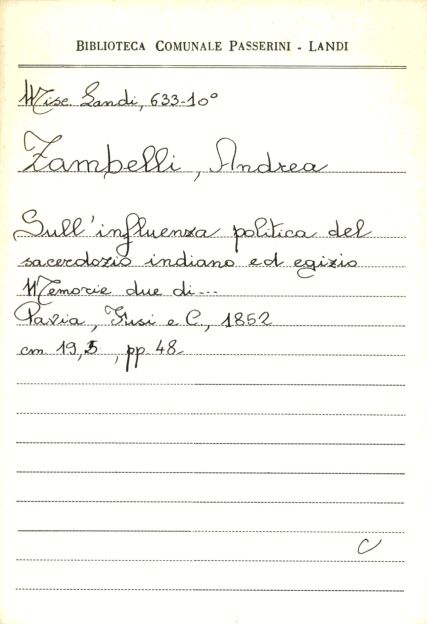 BIBLIOTECA COMUNALE PASSERINI - LANDI
Misc. Landi, 633-10°
Zambelli, Andrea
Sull'influenza politica del
sacerdozio indiano ed egizio
Memorie due di...
Pavia, Fusi e C., 1852
cm 19,5, pp. 48
C